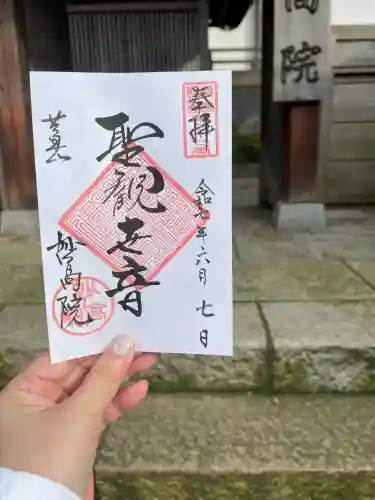 高院
奉拝
令和七年六月七日
聖観世音
妙高院